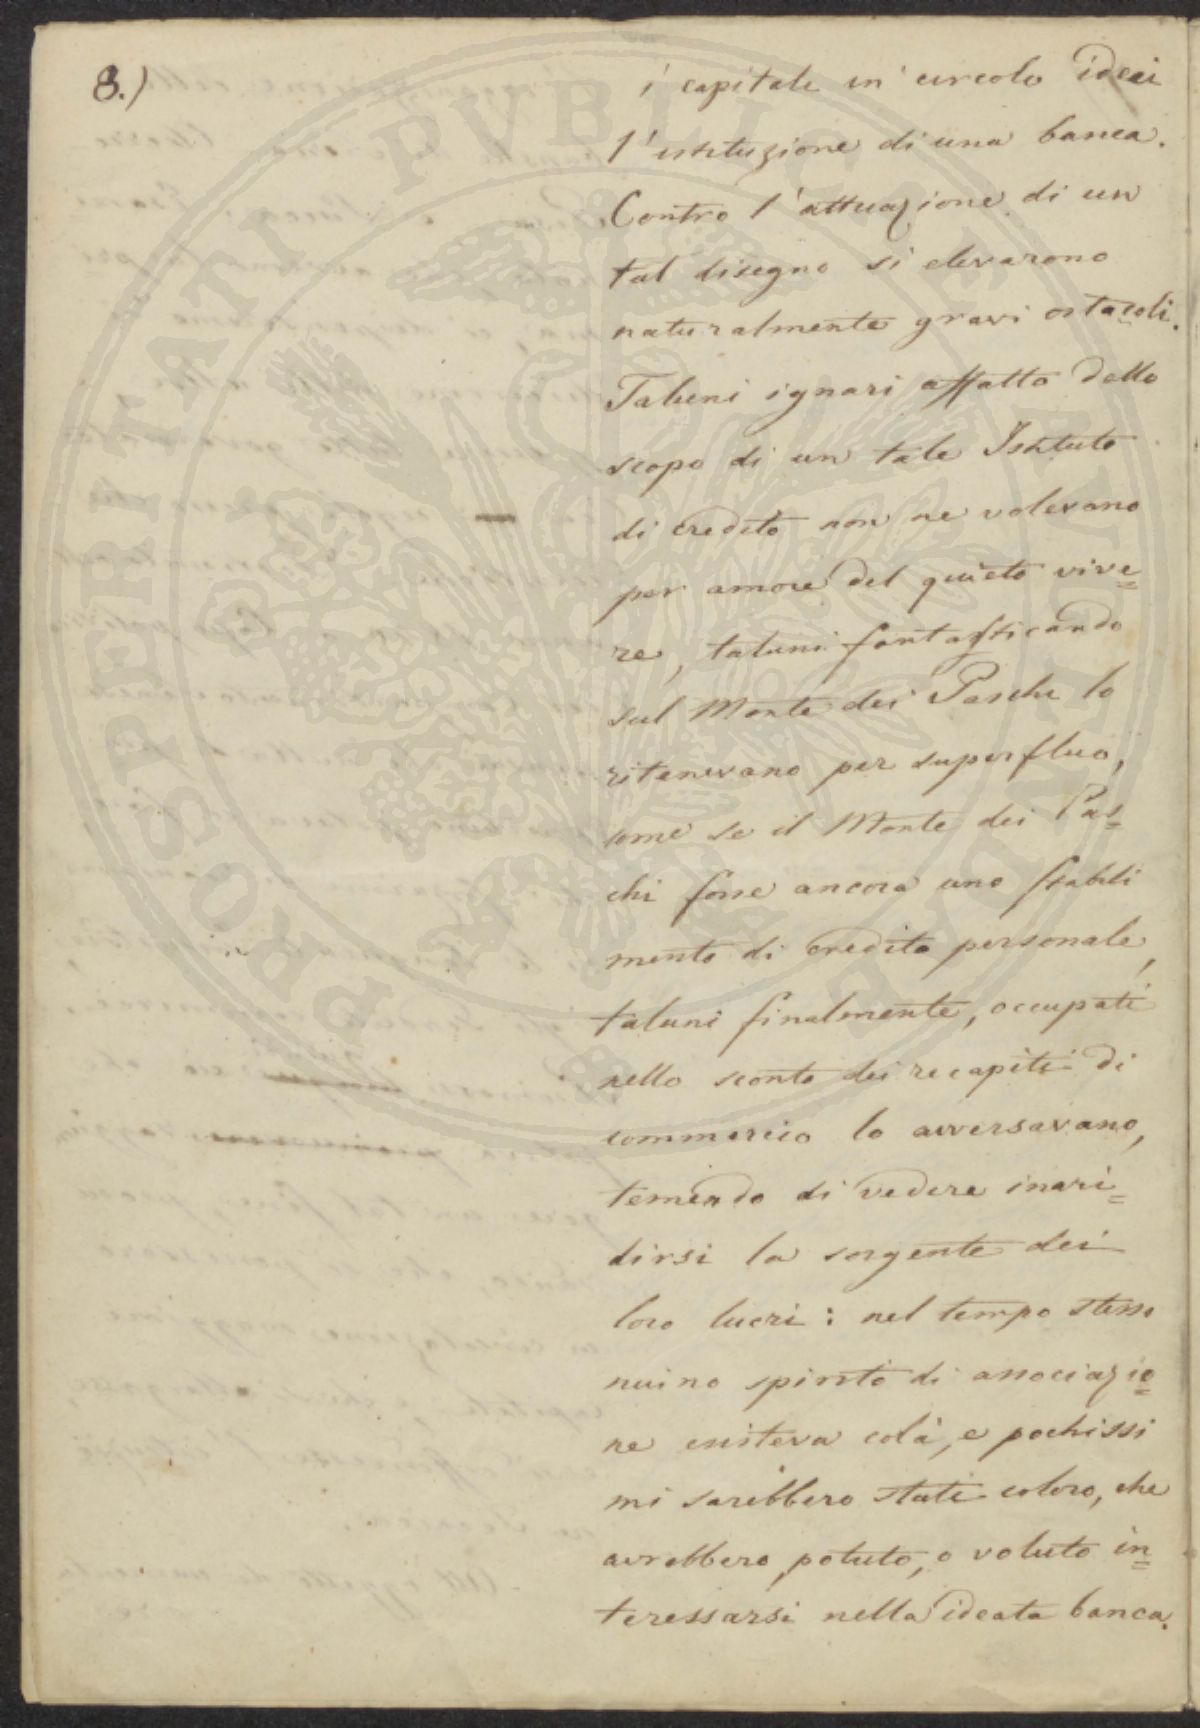 8.)
i capitali in circolo ideai
l'istituzione di una banca.
Contro l'attuazione di un
tal disegno si elevarono
naturalmente gravi ostacoli.
Taluni ignari affatto dello
scopo di un tale Istituto
di credito non ne volevano
per amore del quieto vive=
re, taluni fantasticando
sul Monte dei Paschi lo
ritenevano per superfluo,
come se il Monte dei Pas=
chi fosse ancora uno stabili
mento di credito personale,
taluni finalmente, occupati
nello sconto dei recapiti di
commercio lo avversavano,
temendo di vedere inari=
dirsi la sorgente dei
loro lucri: nel tempo stesso
niuno spirito di associazio=
ne esisteva colà, e pochissi
mi sarebbero stati coloro, che
avrebbero potuto, o voluto in=
teressarsi nella ideata banca.
PROSPERITATI PVBLICAE AVGENDAE